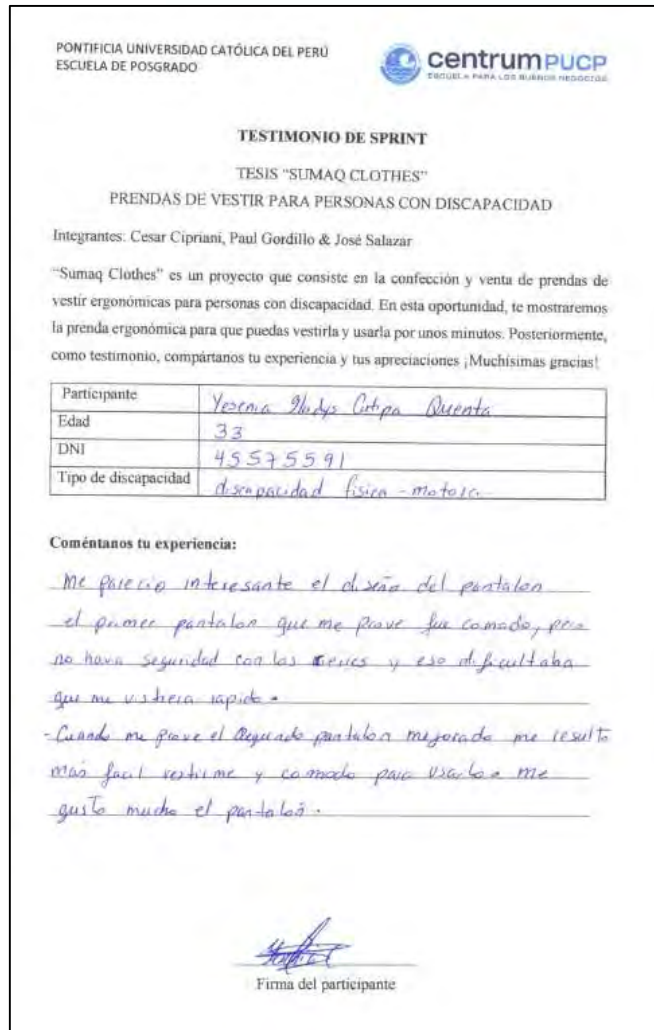 PONTIFICIA UNIVERSIDAD CATÓLICA DEL PERÚ
ESCUELA DE POSGRADO
centrumPUCP
ESCUELA PARA LOS BUENOS NEGOCIOS
TESTIMONIO DE SPRINT
TESIS "SUMAQ CLOTHES"
PRENDAS DE VESTIR PARA PERSONAS CON DISCAPACIDAD
Integrantes: Cesar Cipriani, Paul Gordillo & José Salazar
"Sumaq Clothes" es un proyecto que consiste en la confección y venta de prendas de
vestir ergonómicas para personas con discapacidad. En esta oportunidad, te mostraremos
la prenda ergonómica para que puedas vestirla y usarla por unos minutos. Posteriormente,
como testimonio, compártanos tu experiencia y tus apreciaciones ¡Muchísimas gracias!
Participante Yesenia Gladys Quenta
Edad 33
DNI 45575591
Tipo de discapacidad discapacidad fisica - motora
Coméntanos tu experiencia:
Me parecio interesante el diseño del pantalon
el primer pantalon que me prove fue comodo, pero
no havia seguridad con los cierres y eso dificultaba
que me vistiera rapido.
- Cuando me prove el segundo pantalon mejorado me resulto
mas facil vestirme y comodo para usarlo. Me
gusto mucho el pantalon.
Firma del participante